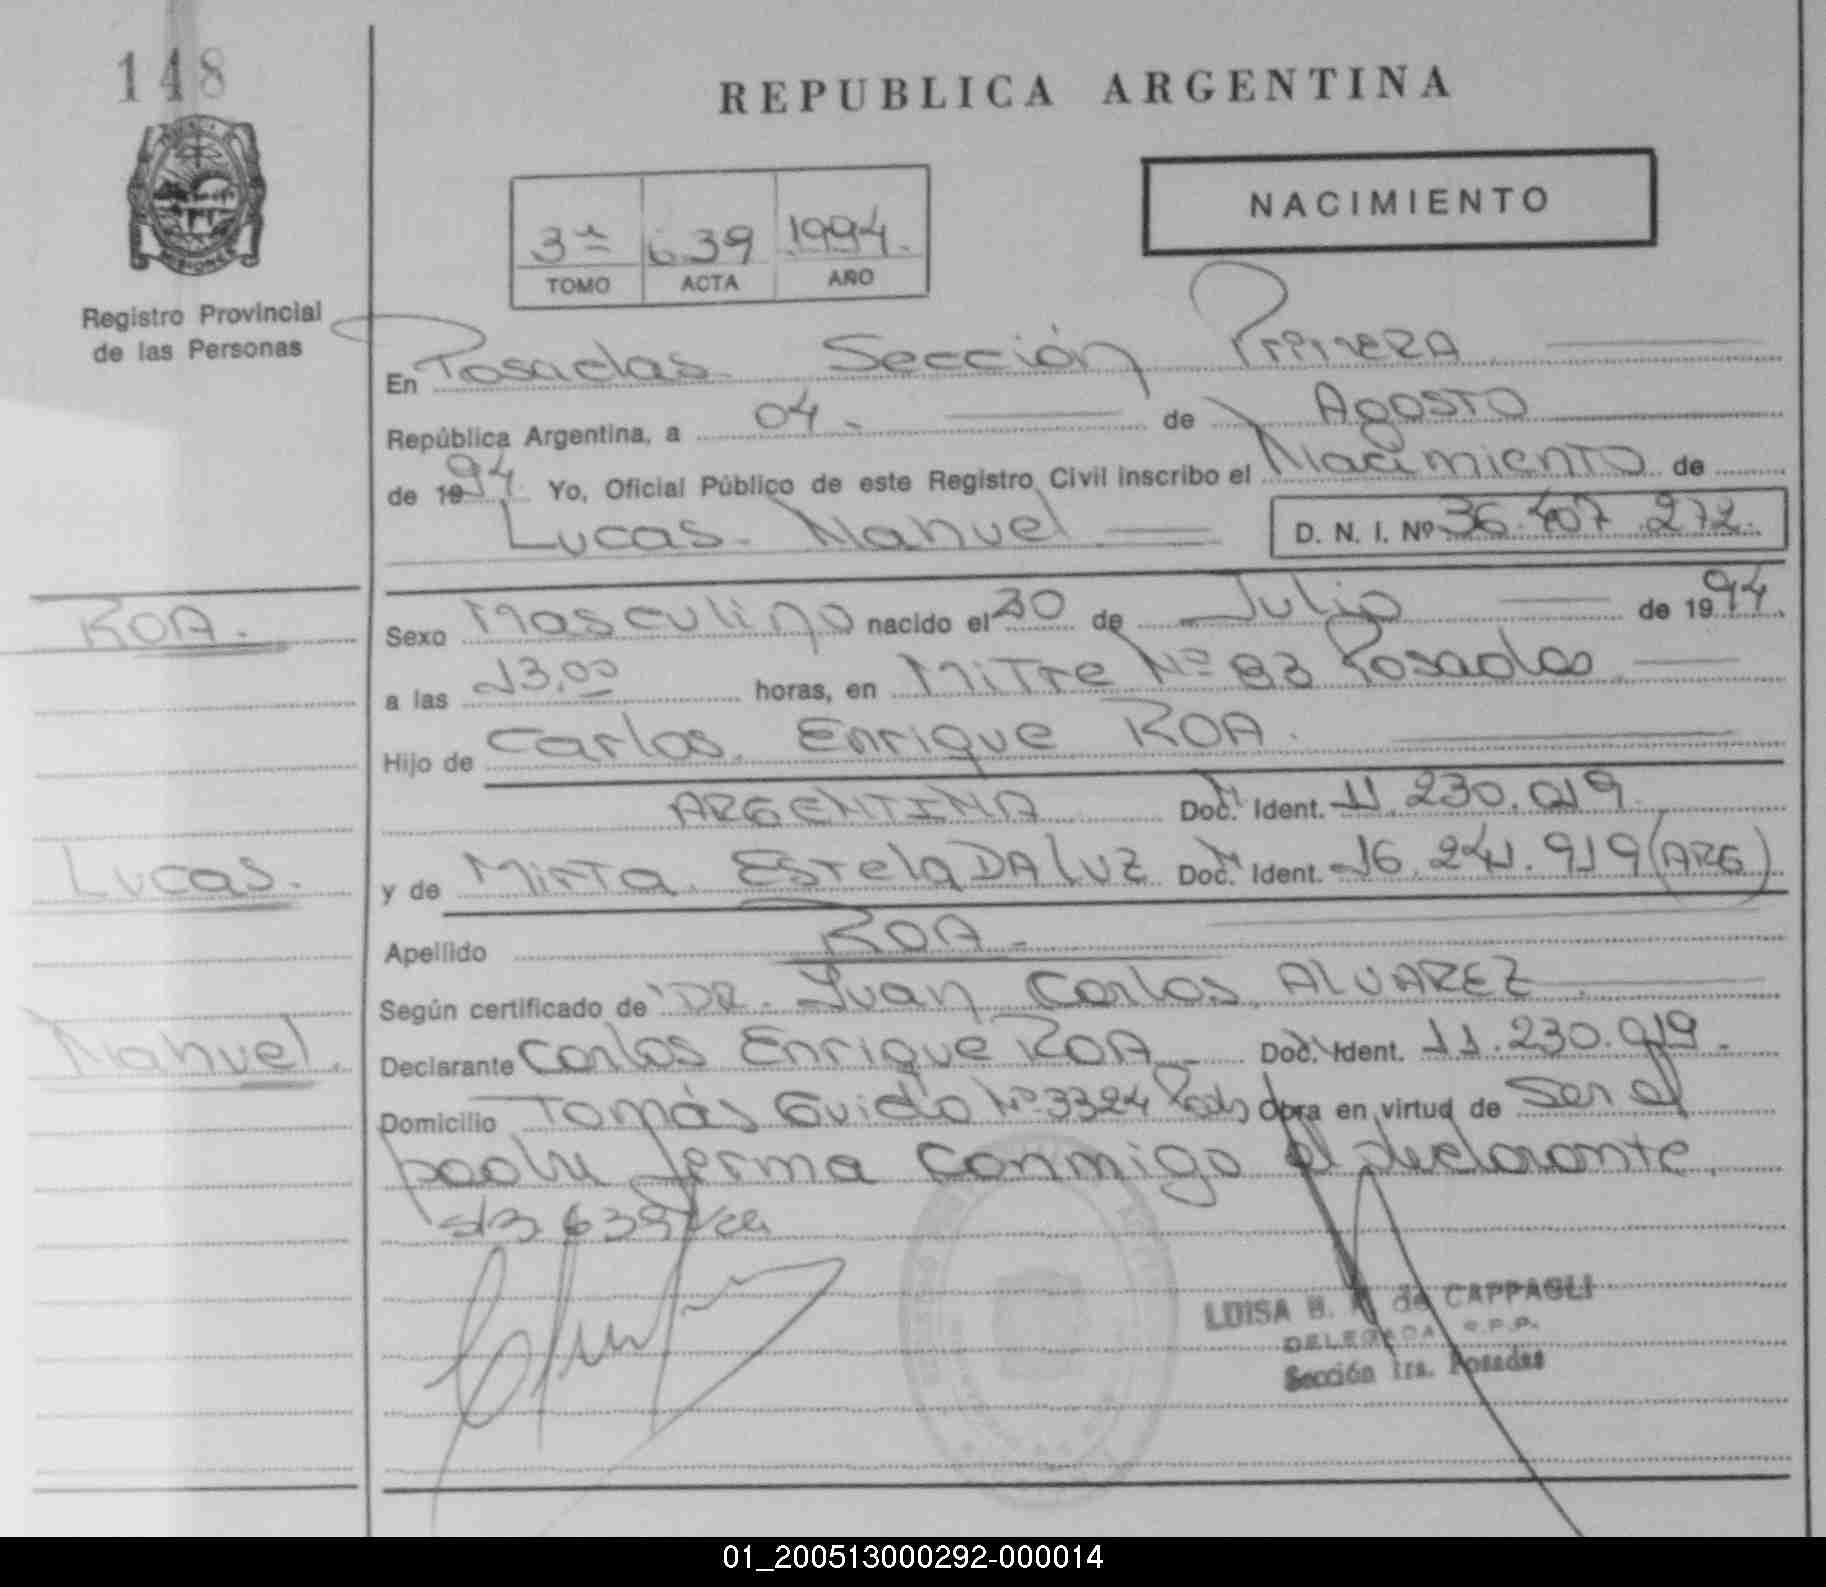 148
REPUBLICA ARGENTINA
NACIMIENTO
3ª 639 1994.
TOMO ACTA AÑO
MISIONES
Registro Provincial
de las Personas
En Posadas Sección Primera
República Argentina, a 04. de Agosto
de 1994. Yo, Oficial Público de este Registro Civil inscribo el Nacimiento de
Lucas Manuel D. N. I. Nº 36.407.272.
ROA.
Sexo Masculino nacido el 30 de Julio de 1994.
a las 13,00 horas, en Mitre Nº 83 Posadas
Hijo de Carlos Enrique ROA.
ARGENTINA Doc. Ident. 11.230.019.
Lucas.
y de Mirta Estela DA LUZ Doc. Ident. 16.241.919 (ARG)
Apellido ROA.
Según certificado de DR. Juan Carlos ALVAREZ
Manuel.
Declarante Carlos Enrique ROA Doc. Ident. 11.230.019.
Domicilio Tomás Guido Nº 3324 Pdas Obra en virtud de ser el
padre firma conmigo el declarante.
639
LUISA B. de CAPPAGLI
DELEGADA R.P.P.
Sección 1ra. Posadas
01_200513000292-000014